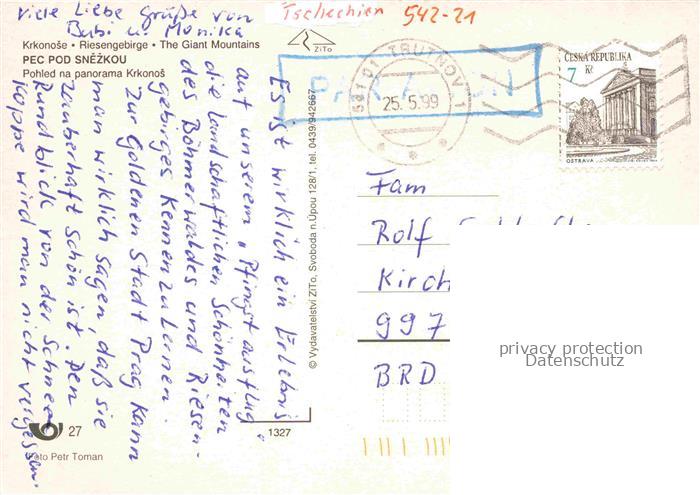 viele Liebe Grüße von
Bub. u. Monika
Tschechien 542-21
Krkonoše • Riesengebirge • The Giant Mountains
PEC POD SNĚŽKOU
Pohled na panorama Krkonoš
ZiTo
Es ist wirklich ein Erlebnis
auf unserem „Pfingstausflug"
die landschaftlichen Schönheiten
des Böhmerwaldes und Riesen-
gebirges kennenzulernen.
Zur Goldenen Stadt Prag kann
man wirklich sagen, daß sie
zauberhaft schön ist. Den
Rundblick von der Schnee
koppe wird man nicht vergessen.
27
Foto Petr Toman
1327
© Vydavatelství ZiTo, Svoboda n.Úpou 128/1, tel. 0439/942667
541 01 TRUTNOV 1
25.5.99
ČESKÁ REPUBLIKA
7 Kč
OSTRAVA
Fam
Rolf
Kirch
997
BRD
privacy protection
Datenschutz